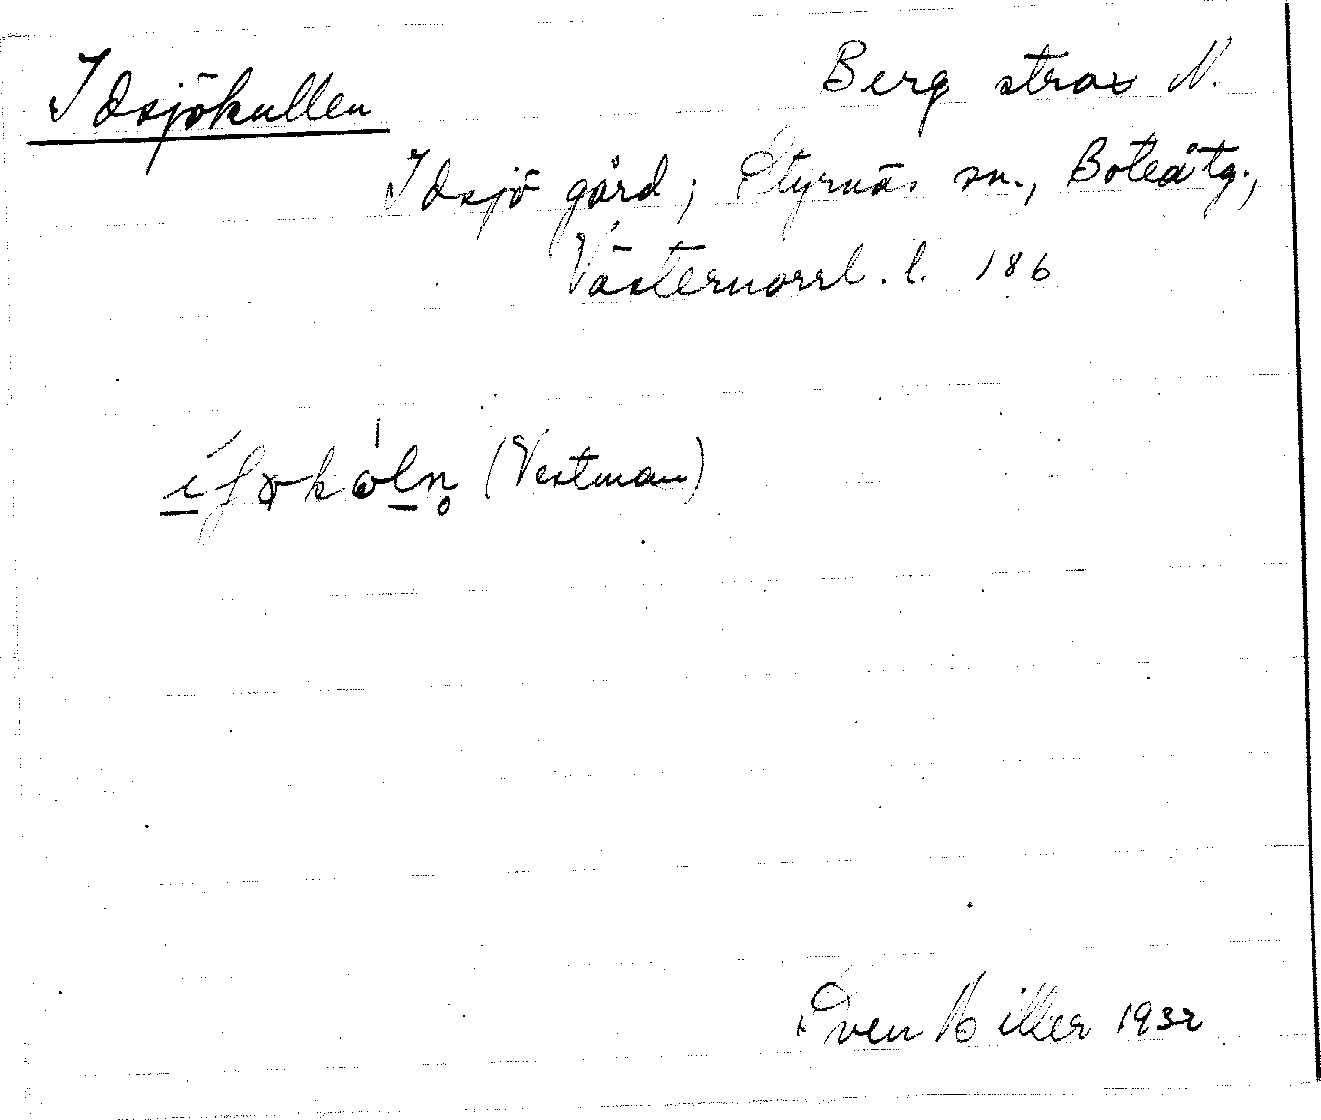 Idsjökullen
Berg strax N.
Idsjö gård; Styrnäs sn., Boteå tg.,
Västernorrl. l. 186
(Vestman)
Sven Hiller 1932